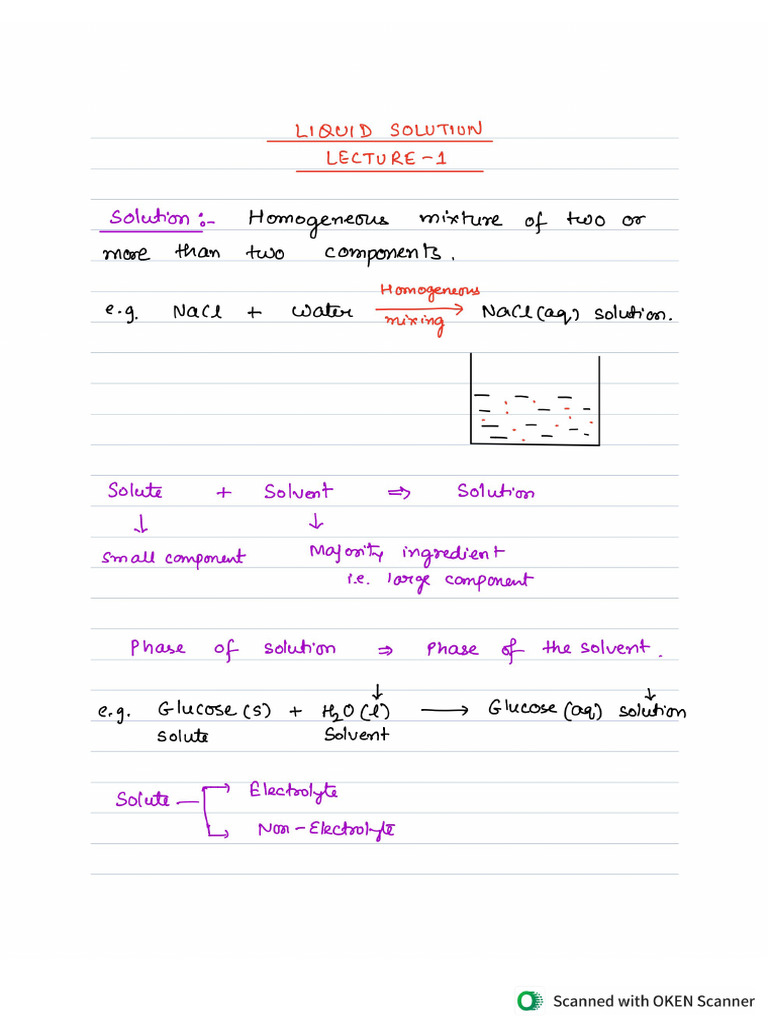 LIQUID SOLUTION
LECTURE-1
Solution:- Homogeneous mixture of two or
more than two components.
Homogeneous
e.g. NaCl + Water ⟶ NaCl(aq) solution.
mixing
Solute + Solvent ⇒ Solution
↓ ↓
small component Majority ingredient
i.e. large component
Phase of solution ⇒ Phase of the solvent.
↓ ↓
e.g. Glucose(s) + H2O(l) ⟶ Glucose(aq) solution
Solute Solvent
Solute → Electrolyte
→ Non-Electrolyte
Scanned with OKEN Scanner